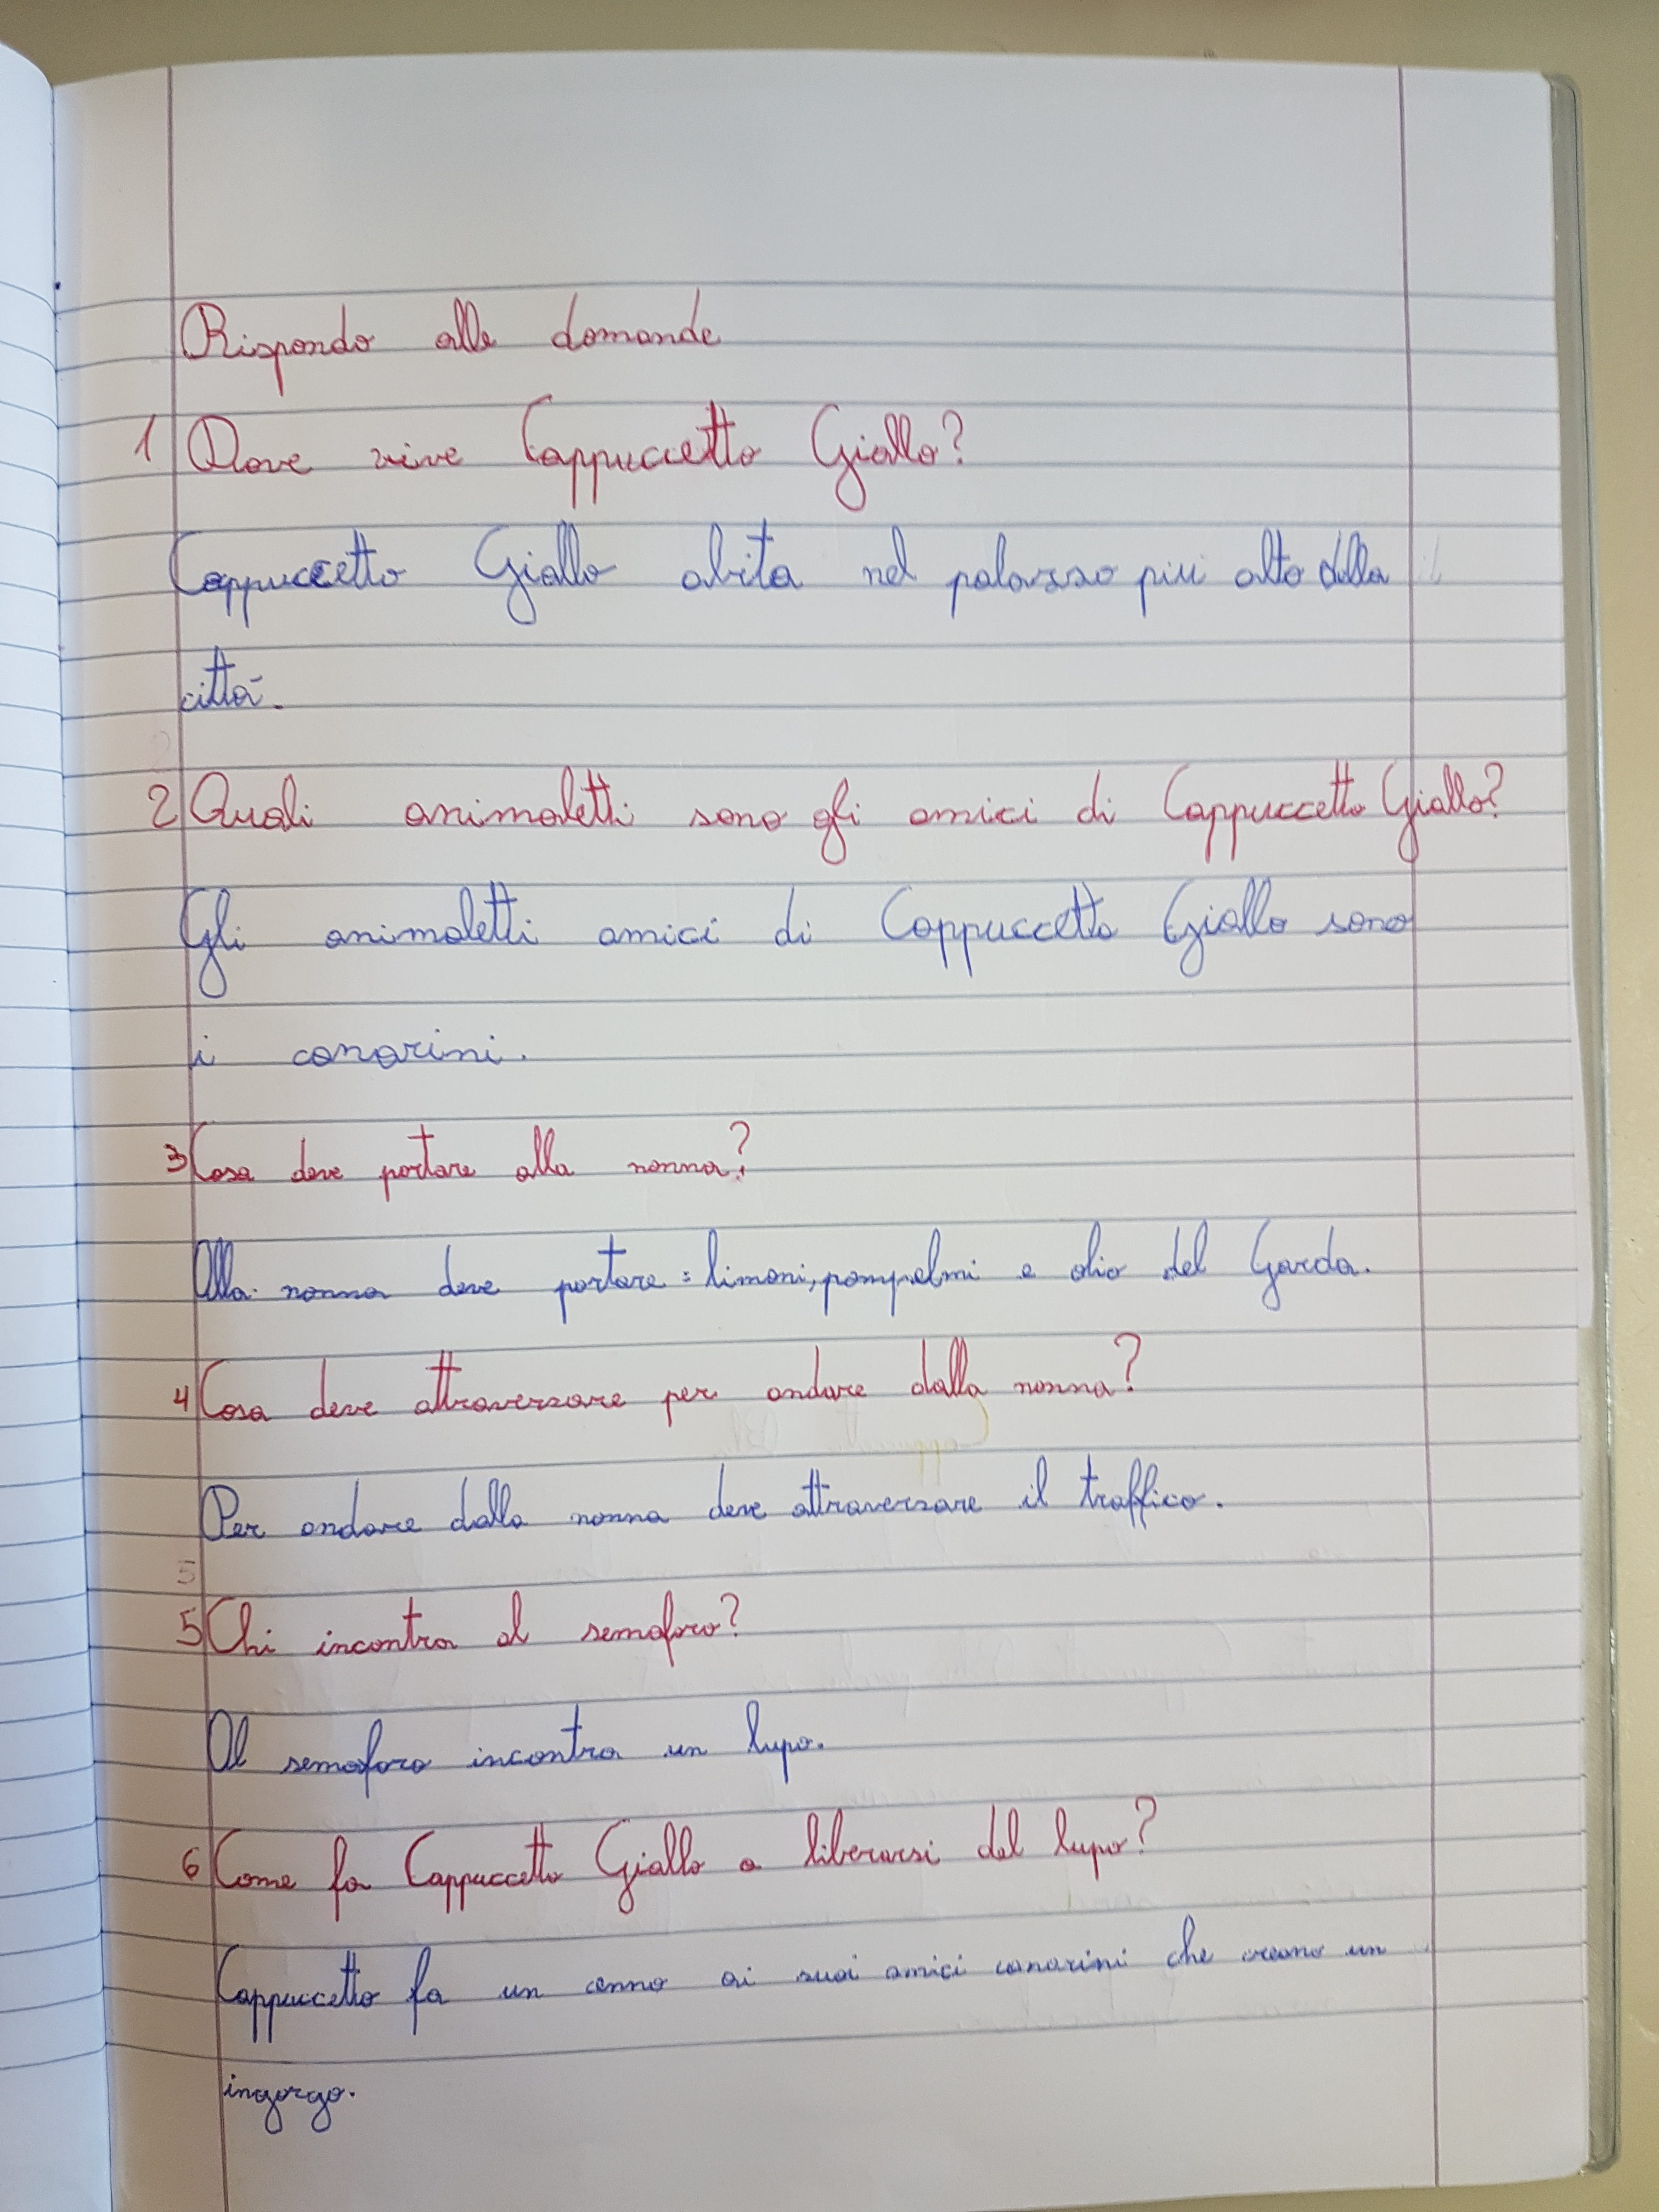 Rispondo alle domande
1 Dove vive Cappuccetto Giallo?
Cappuccetto Giallo abita nel palazzo più alto della
città.
2 Quali animaletti sono gli amici di Cappuccetto Giallo?
Gli animaletti amici di Cappuccetto Giallo sono
i canarini.
3 Cosa deve portare alla nonna?
Alla nonna deve portare: limoni, pompelmi e olio del Garda.
4 Cosa deve attraversare per andare dalla nonna?
Per andare dalla nonna deve attraversare il traffico.
5 Chi incontra al semaforo?
Al semaforo incontra un lupo.
6 Come fa Cappuccetto Giallo a liberarsi del lupo?
Cappuccetto fa un cenno ai suoi amici canarini che creano un
ingorgo.